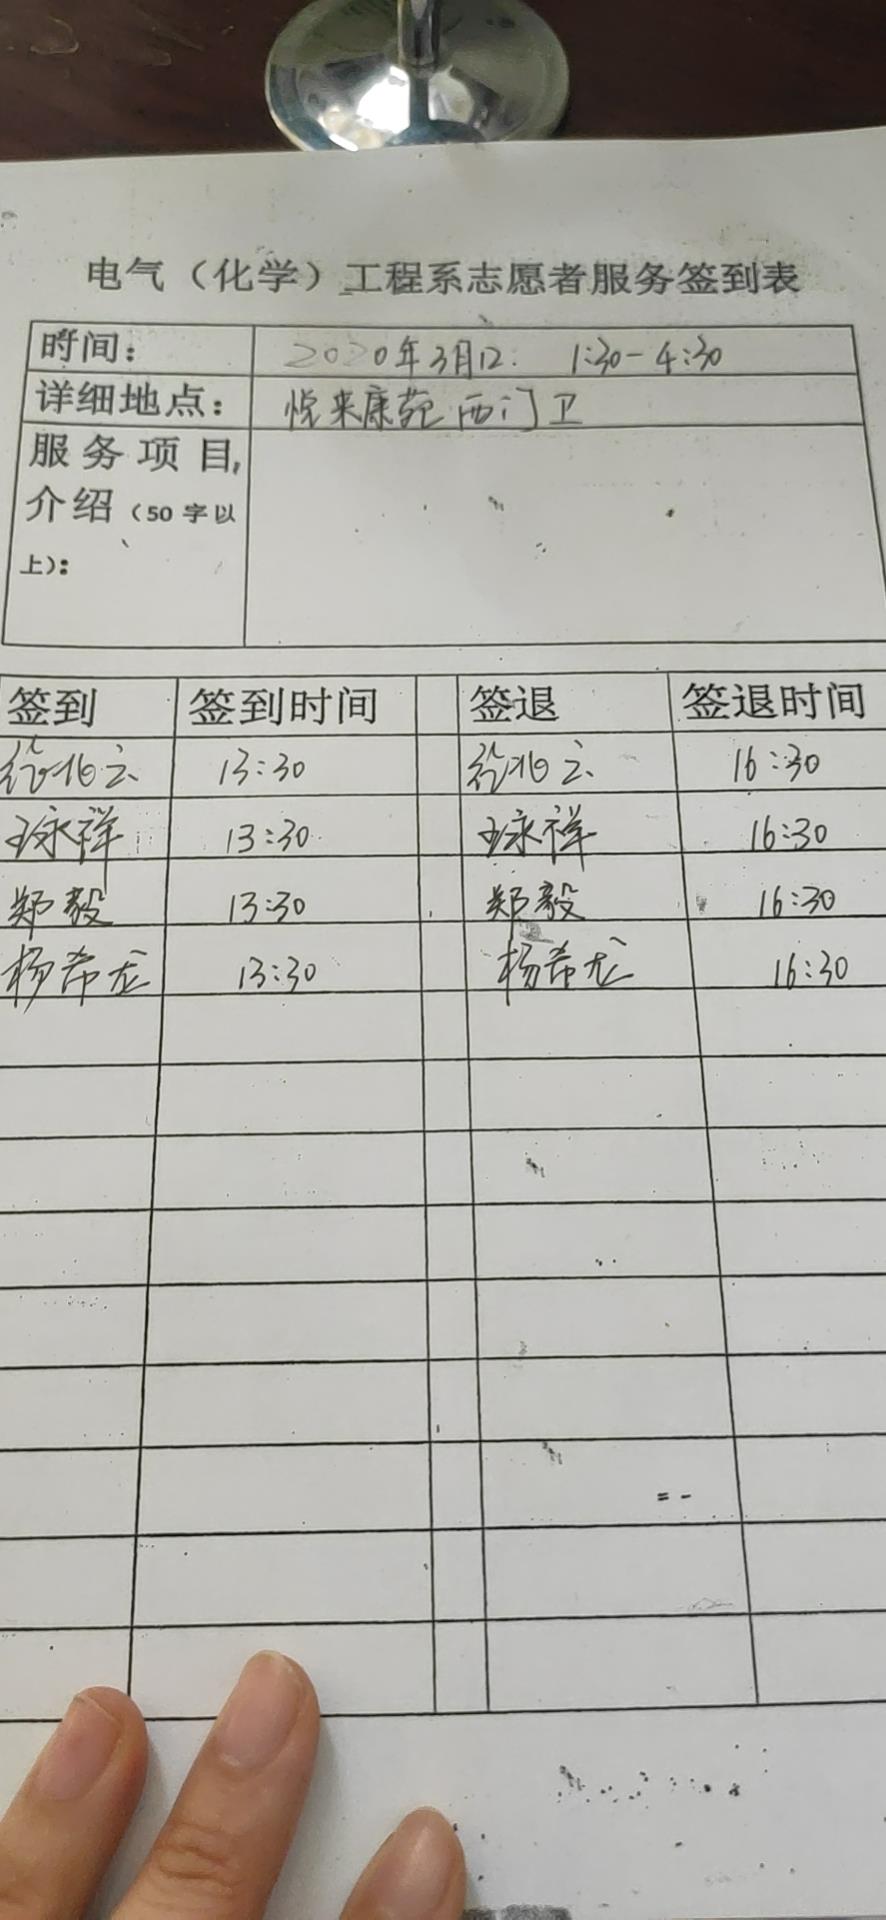 电气（化学）工程系志愿者服务签到表
时间： 2020年3月12. 1:30-4:30
详细地点： 悦来康苑西门卫
服务项目,
介绍（50字以
上）：
签到 签到时间 签退 签退时间
13:30 16:30
王永祥 13:30 王永祥 16:30
郑毅 13:30 郑毅 16:30
杨希龙 13:30 杨希龙 16:30